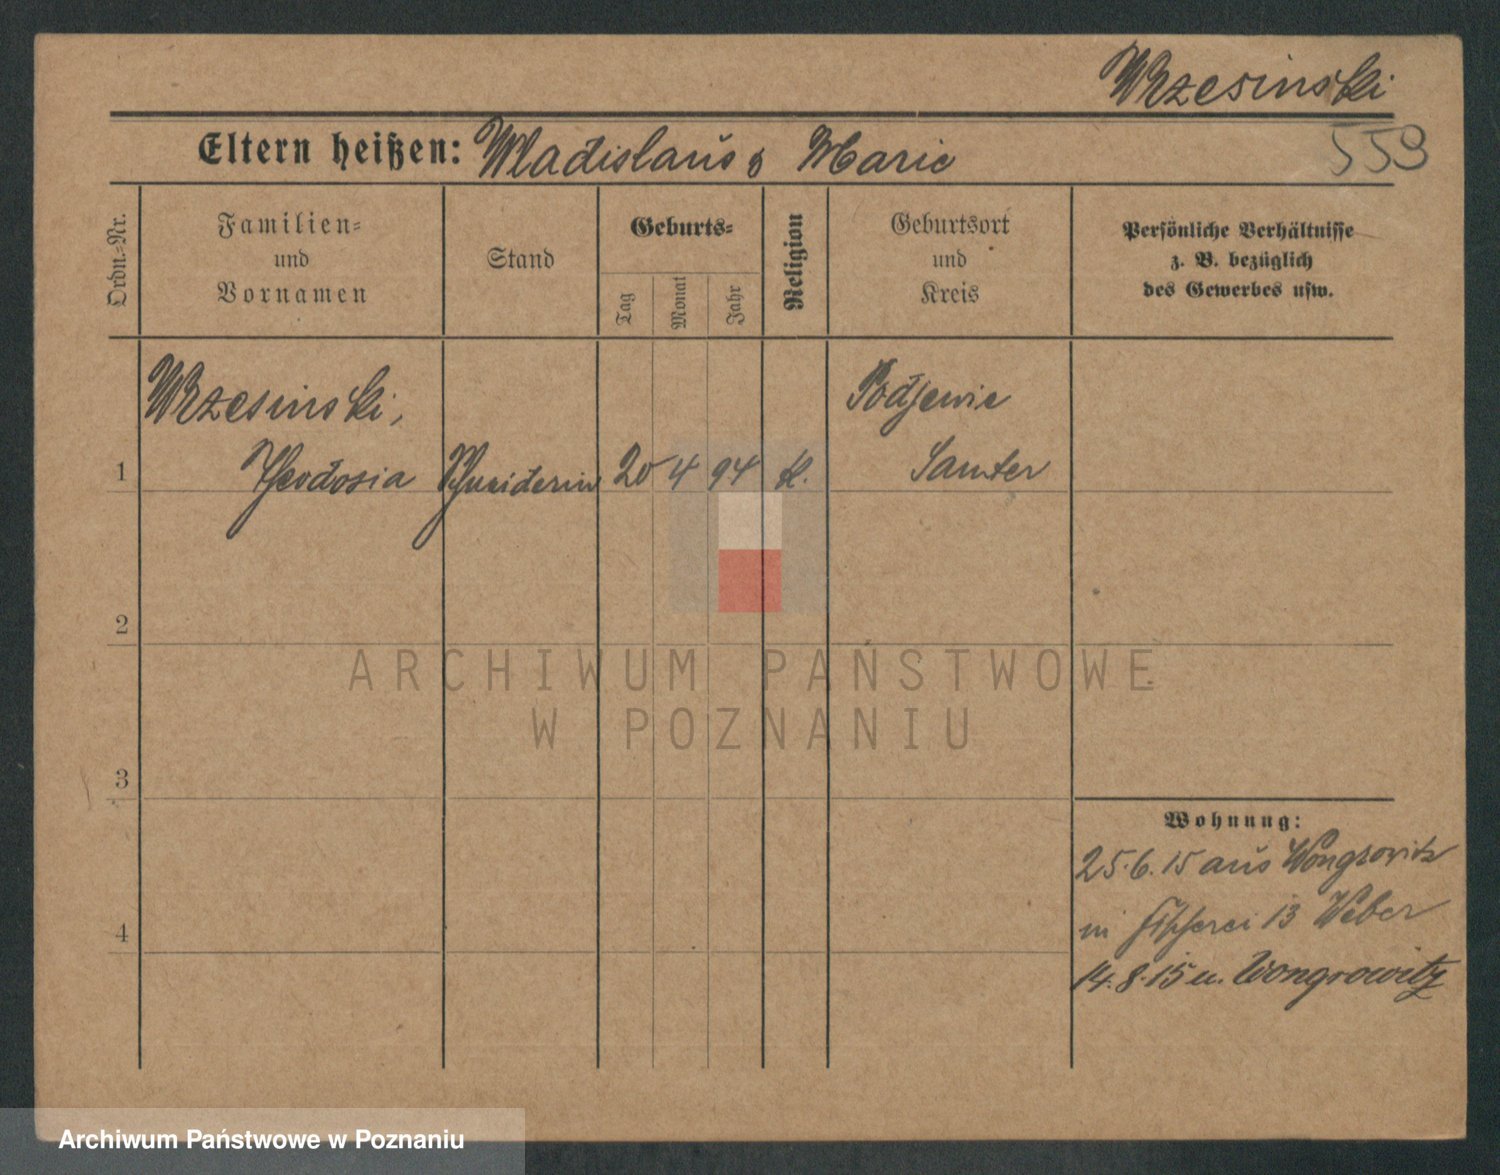 Wrzesinski
559
Eltern heißen: Wladislaus & Marie
Ordn.=Nr.
Familien=
und
Vornamen
Stand
Geburts=
Tag
Monat
Jahr
Religion
Geburtsort
und
Kreis
Persönliche Verhältnisse
z. B. bezüglich
des Gewerbes usw.
Wrzesinski,
Podjewie
1 Theodosia Schneiderin 20 4 94 k. Samter
2
ARCHIWUM PAŃSTWOWE
W POZNANIU
3
Wohnung:
25.6.15 aus Wongrowitz
in Fischerei 13 Weber
4
14.8.15 n. Wongrowitz
Archiwum Państwowe w Poznaniu